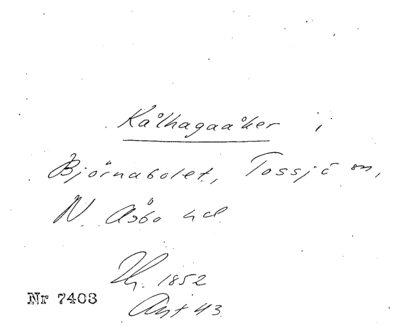 Kålhagaåker i
Björnabolet, Tossjö sn,
N. Åsbo hd
Th. 1852
Ant 43
Nr 7403